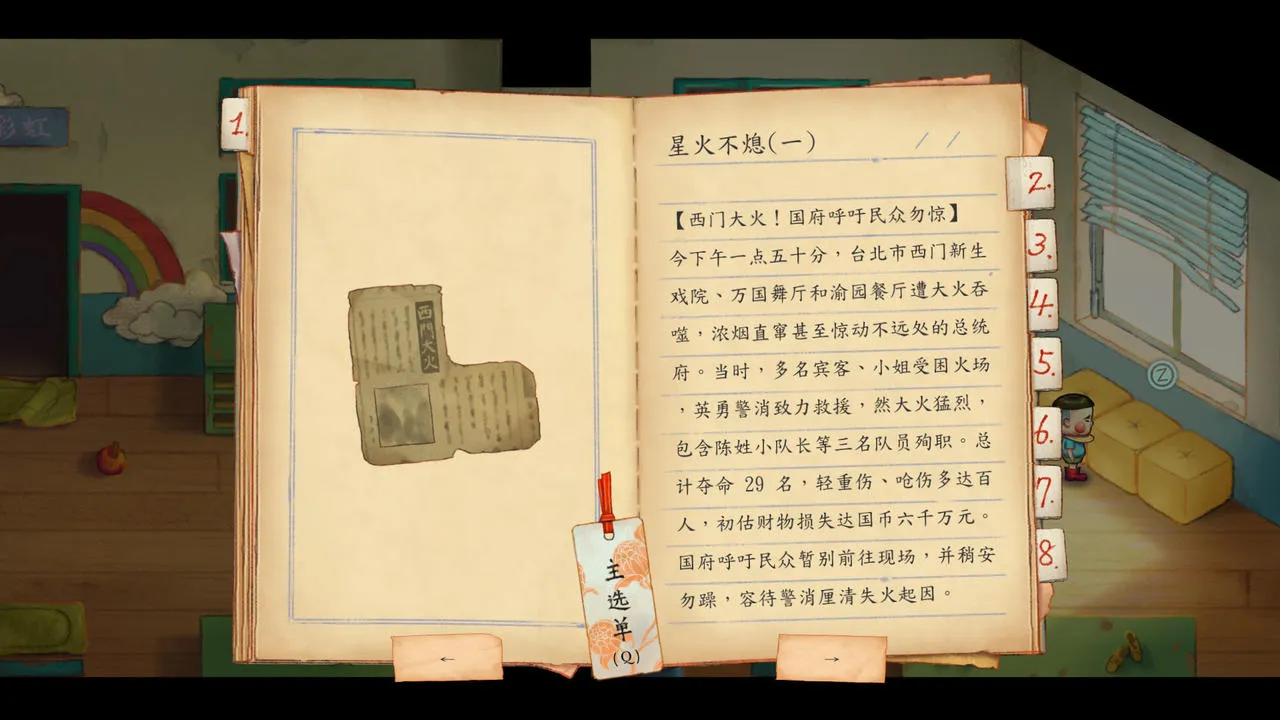 彩虹
1.
西門大火
星火不熄(一)
/ /
【西门大火！国府呼吁民众勿惊】
今下午一点五十分，台北市西门新生
戏院、万国舞厅和渝园餐厅遭大火吞
噬，浓烟直窜甚至惊动不远处的总统
府。当时，多名宾客、小姐受困火场
，英勇警消致力救援，然大火猛烈，
包含陈姓小队长等三名队员殉职。总
计夺命 29 名，轻重伤、呛伤多达百
人，初估财物损失达国币六千万元。
国府呼吁民众暂别前往现场，并稍安
勿躁，容待警消厘清失火起因。
2.
3.
4.
5.
6.
7.
8.
Z
主选单
(Q)
←
→